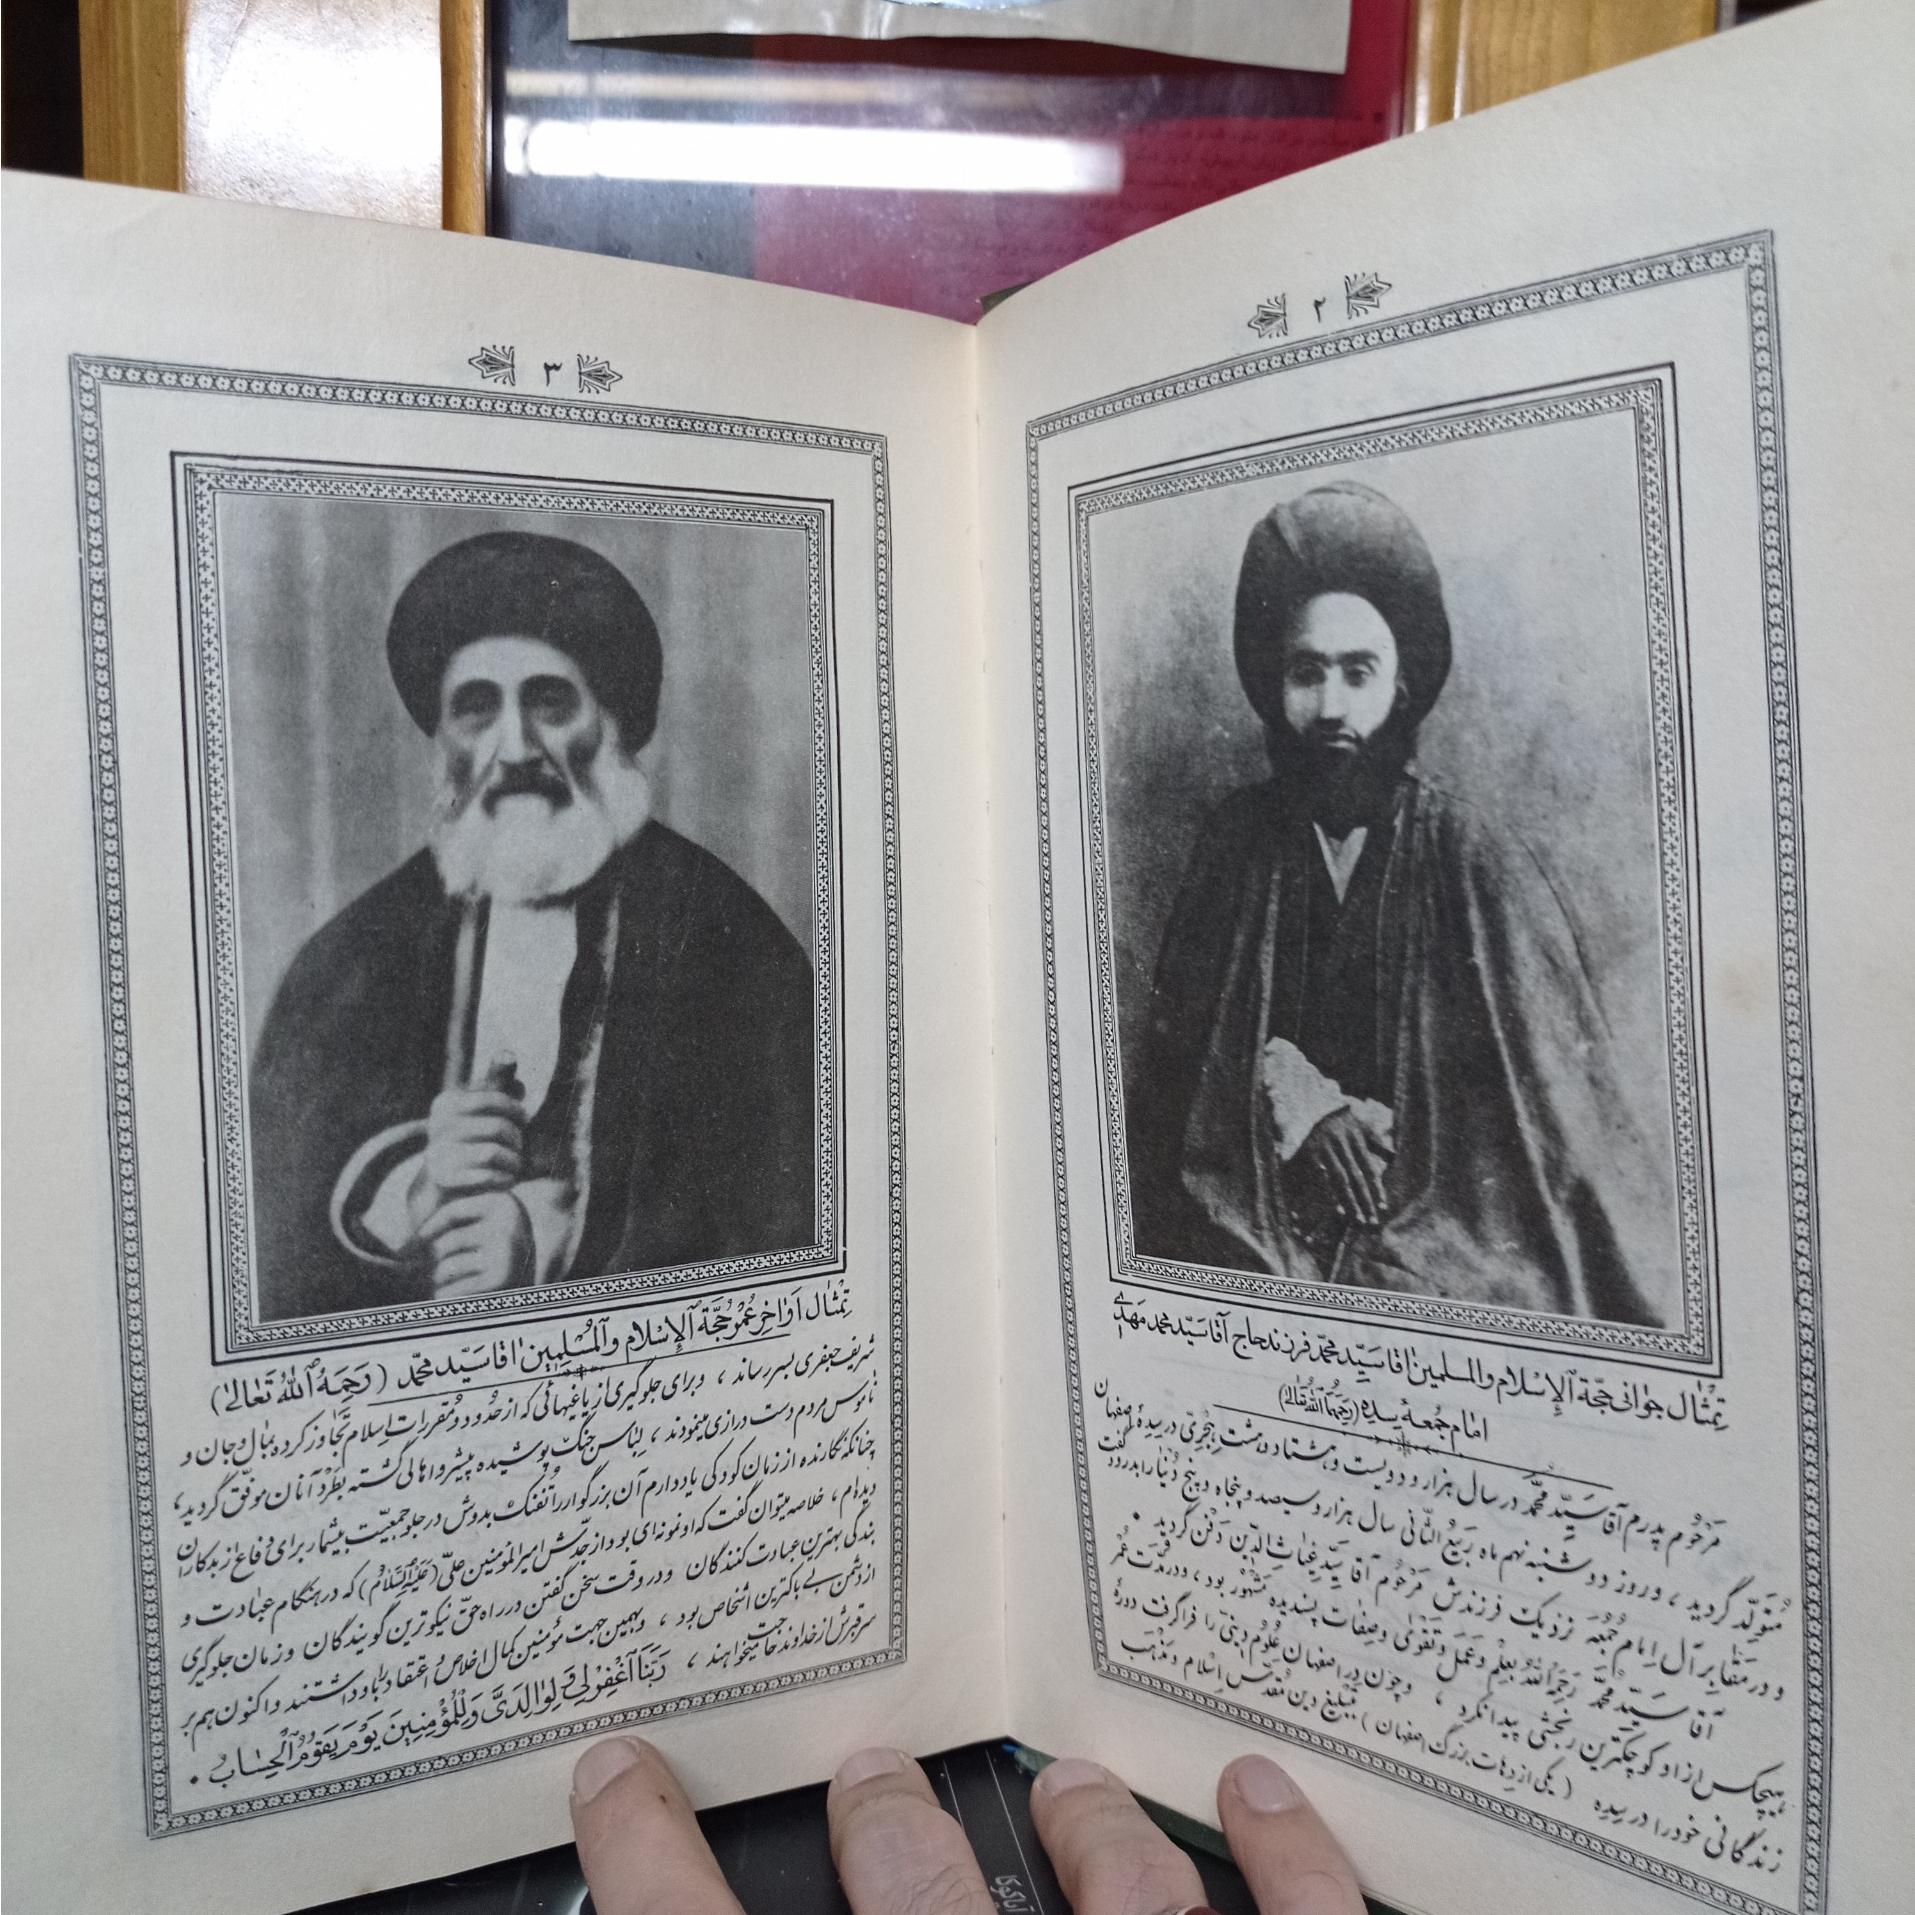 ۲
تِمْثٰال جوٰانی حجّة اَلاِسْلام والمسلمین اٰقا سَیِّد محمّد فرزند حاج آقا سیّد محمد مَهدی
امٰام جُمعهٔ سِدِه (رَحِمَهُمَا اللهُ تَعٰالیٰ)
مَرْحُوم پدرم آقا سَیِّد مُحمَّد در سال هزار و دویست و هشتاد و هشت هِجْریّ در سِدِهٔ اِصفهان
مُتَوَلِّد گردید ، و روز دوشنبه نهم ماه رَبیعُ الثّانی سال هزار و سیصد و پنجاه و پنج دُنیٰا را بدرود گفت
و در مَقٰابِر آل اِمام جُمُعَه نزدیک فرزندش مَرْحُوم آقا سَیِّد غیٰاث الدّین دَفْن گردید .
آقا سَیِّد مُحمَّد رَحِمَهُ اللهُ بعِلْم و عَمَل و تَقْویٰ و صِفٰات پسندیده مَشْهُور بود ، و در مُدَّت عُمر
هیچکس از او کوچکترین رنجشی پیدا نکرد ، و چون در اصفهان عُلُوم دینیّ را فرا گرفت دورهٔ
زندگانی خود را در سِدِه ( یکی از دهات بزرگ اصفهان ) بتبلیغ دین مُقدّس اِسْلام و مَذْهَب
۳
تِمْثٰال اَوٰاخِر عُمْر حُجَّة اَلاِسْلام واَلْمُسْلِمین اٰقا سَیِّد محمّد (رَحِمَهُ اَللهُ تَعٰالیٰ)
شریف جعفری بسر رساند ، و برای جلوگیری از یاغیهائی که از حُدود و مُقررات اِسلام تَجٰاوز کرده بمٰال و جان و
نٰاموس مردم دست درازی مینمودند ، لِبٰاس جَنگ پوشیده پیشرو اهالی گشته بطَرْد آنان موفّق گردید ،
چنانکه نگارنده از زمان کودکی یاد دارم آن بزرگوار را تُفنگ بدوش در جلو جمعیّت بیشمار برای دِفاع از بدکاران
دیده‌ام ، خلاصه میتوان گفت که او نمونه‌ای بود از جَدّش امیرالمؤمنین علیّ (عَلَیْهِ السَّلامُ) که در هنگام عبادت و
بندگی بهترین عبادت کنندگان و در وقت سخن گفتن در راه حقّ نیکوترین گویندگان و زمان جلوگیری
از دشمن بی باکترین اشخاص بود ، و بهمین جهت مؤمنین کمال اخلاص و اعتقاد را باو داشتند و اکنون هم بر
سر قبرش از خداوند حاجت میخواهند ، رَبَّنَا اَغْفِرْلی وَلِوٰالِدَیَّ وَلِلْمُؤْمِنینَ یَوْمَ یَقُومُ الْحِسٰابُ .